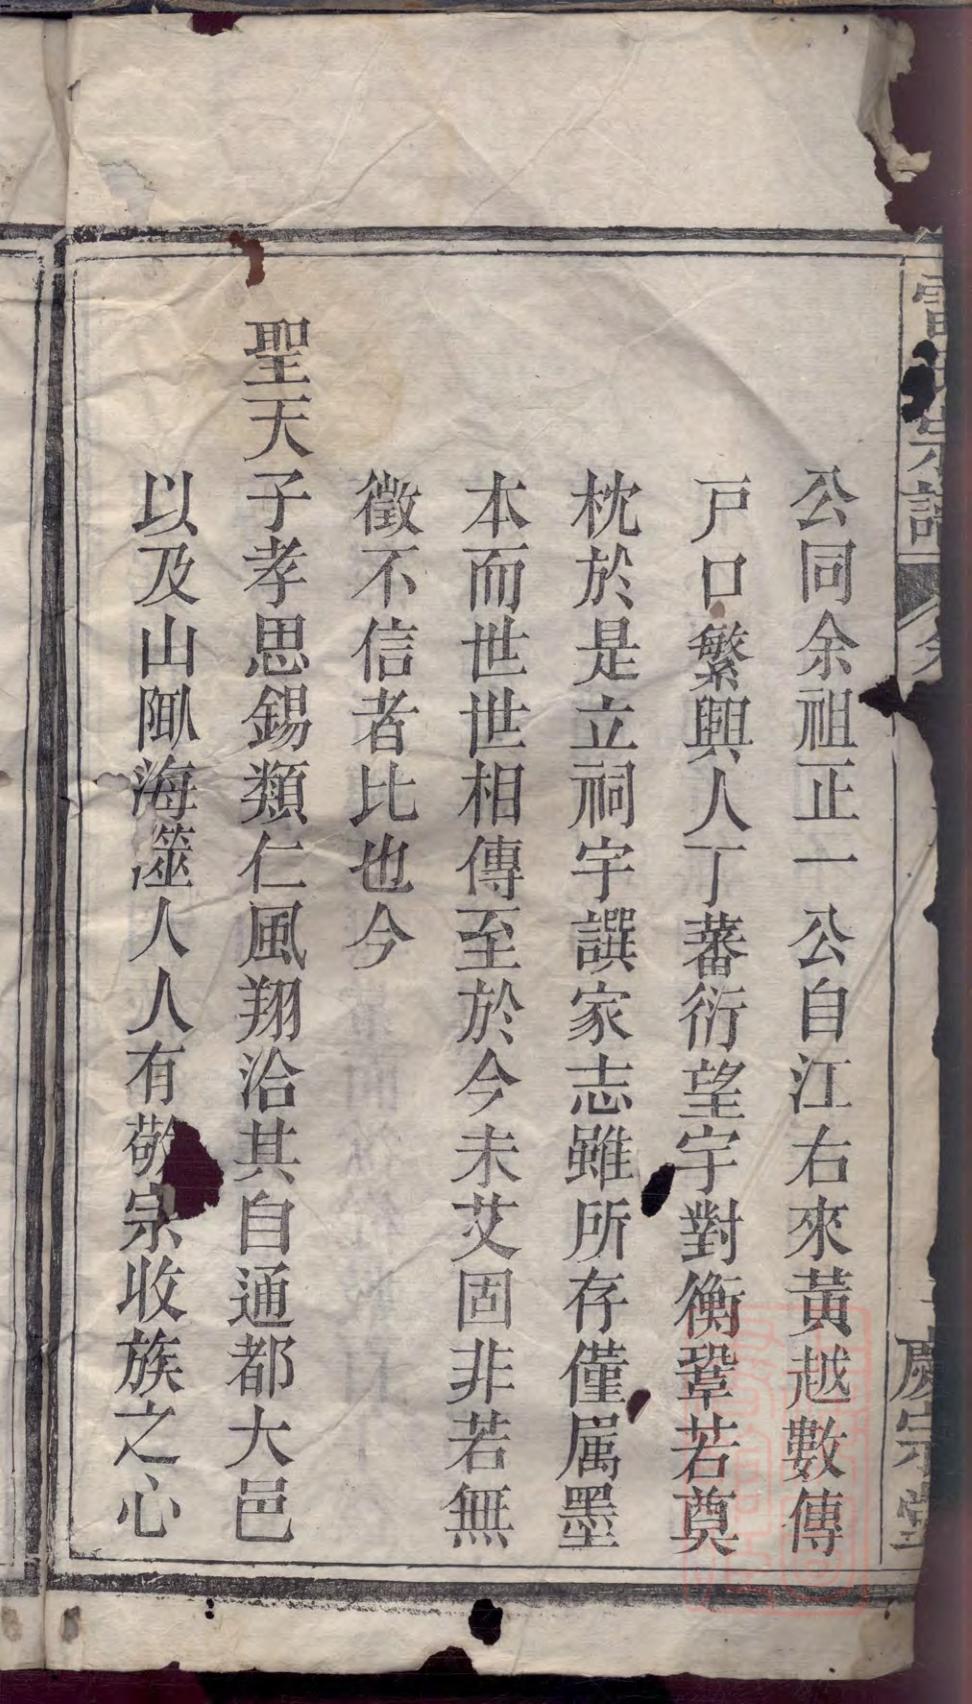 雷氏宗譜
慶宗堂
公同余祖正一公自江右來黃越數傳
戸口繁興人丁蕃衍望宇對衡鞏若奠
枕於是立祠宇譔家志雖所存僅属墨
本而世世相傳至於今未艾固非若無
徵不信者比也今
聖天子孝思錫類仁風翔洽其自通都大邑
以及山陬海澨人人有敬宗收族之心